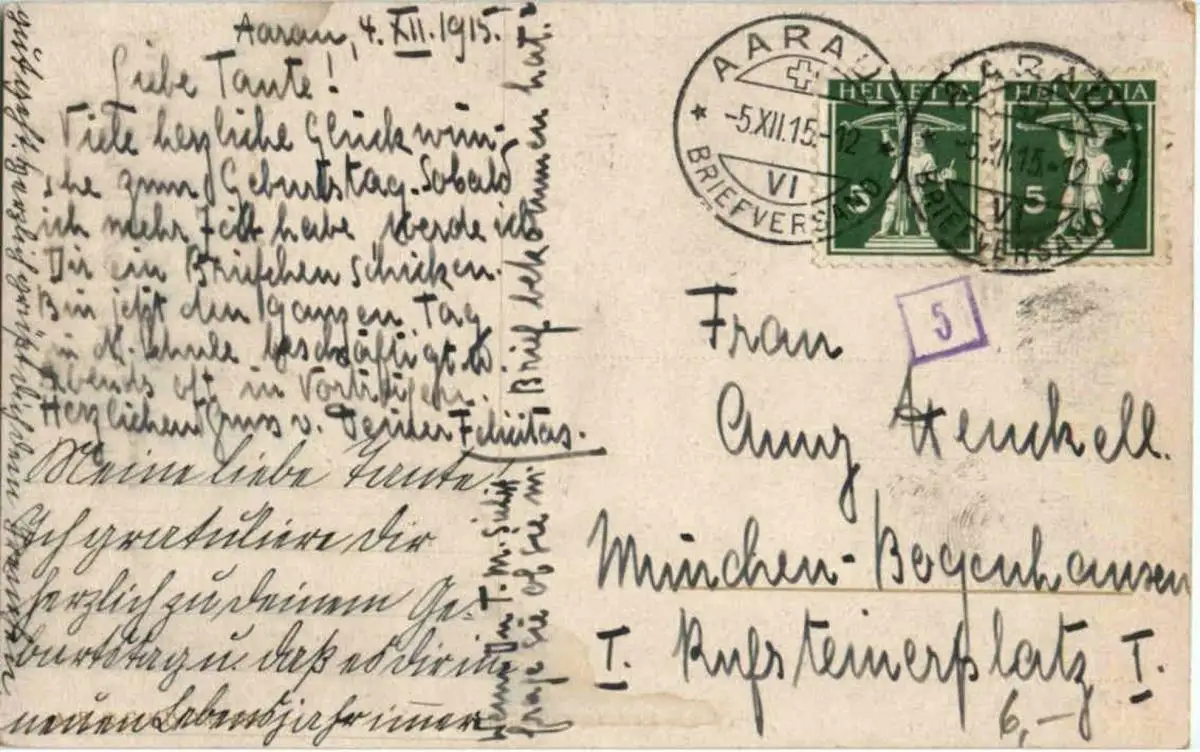 Aarau, 4. XII. 1915.
Liebe Tante!
Viele herzliche Glückwün-
sche zum Geburtstag. Sobald
ich mehr Zeit habe werde ich
Dir ein Briefchen schicken.
Bin jetzt den ganzen Tag
in d. Schule beschäftigt u.
Abends oft in Vorträgen.
Herzlichen Gruss v. Deiner Felicitas.
Meine liebe Tante!
Ich gratuliere dir
herzlich zu deinem Ge-
burtstag u. daß es dir im
neuen Lebensjahr immer
gut geht. Herzlich grüßt
Wenn Du T. M. siehst
frage sie ob sie m.
Brief bekommen hat.
AARAU
-5.XII.15-12
VI
BRIEFVERSAND
HELVETIA
5
AARAU
-5.XII.15-12
VI
BRIEFVERSAND
HELVETIA
5
5
Frau
Anny Henckell.
München-Bogenhausen
I. Kufsteinerplatz I.
6,-